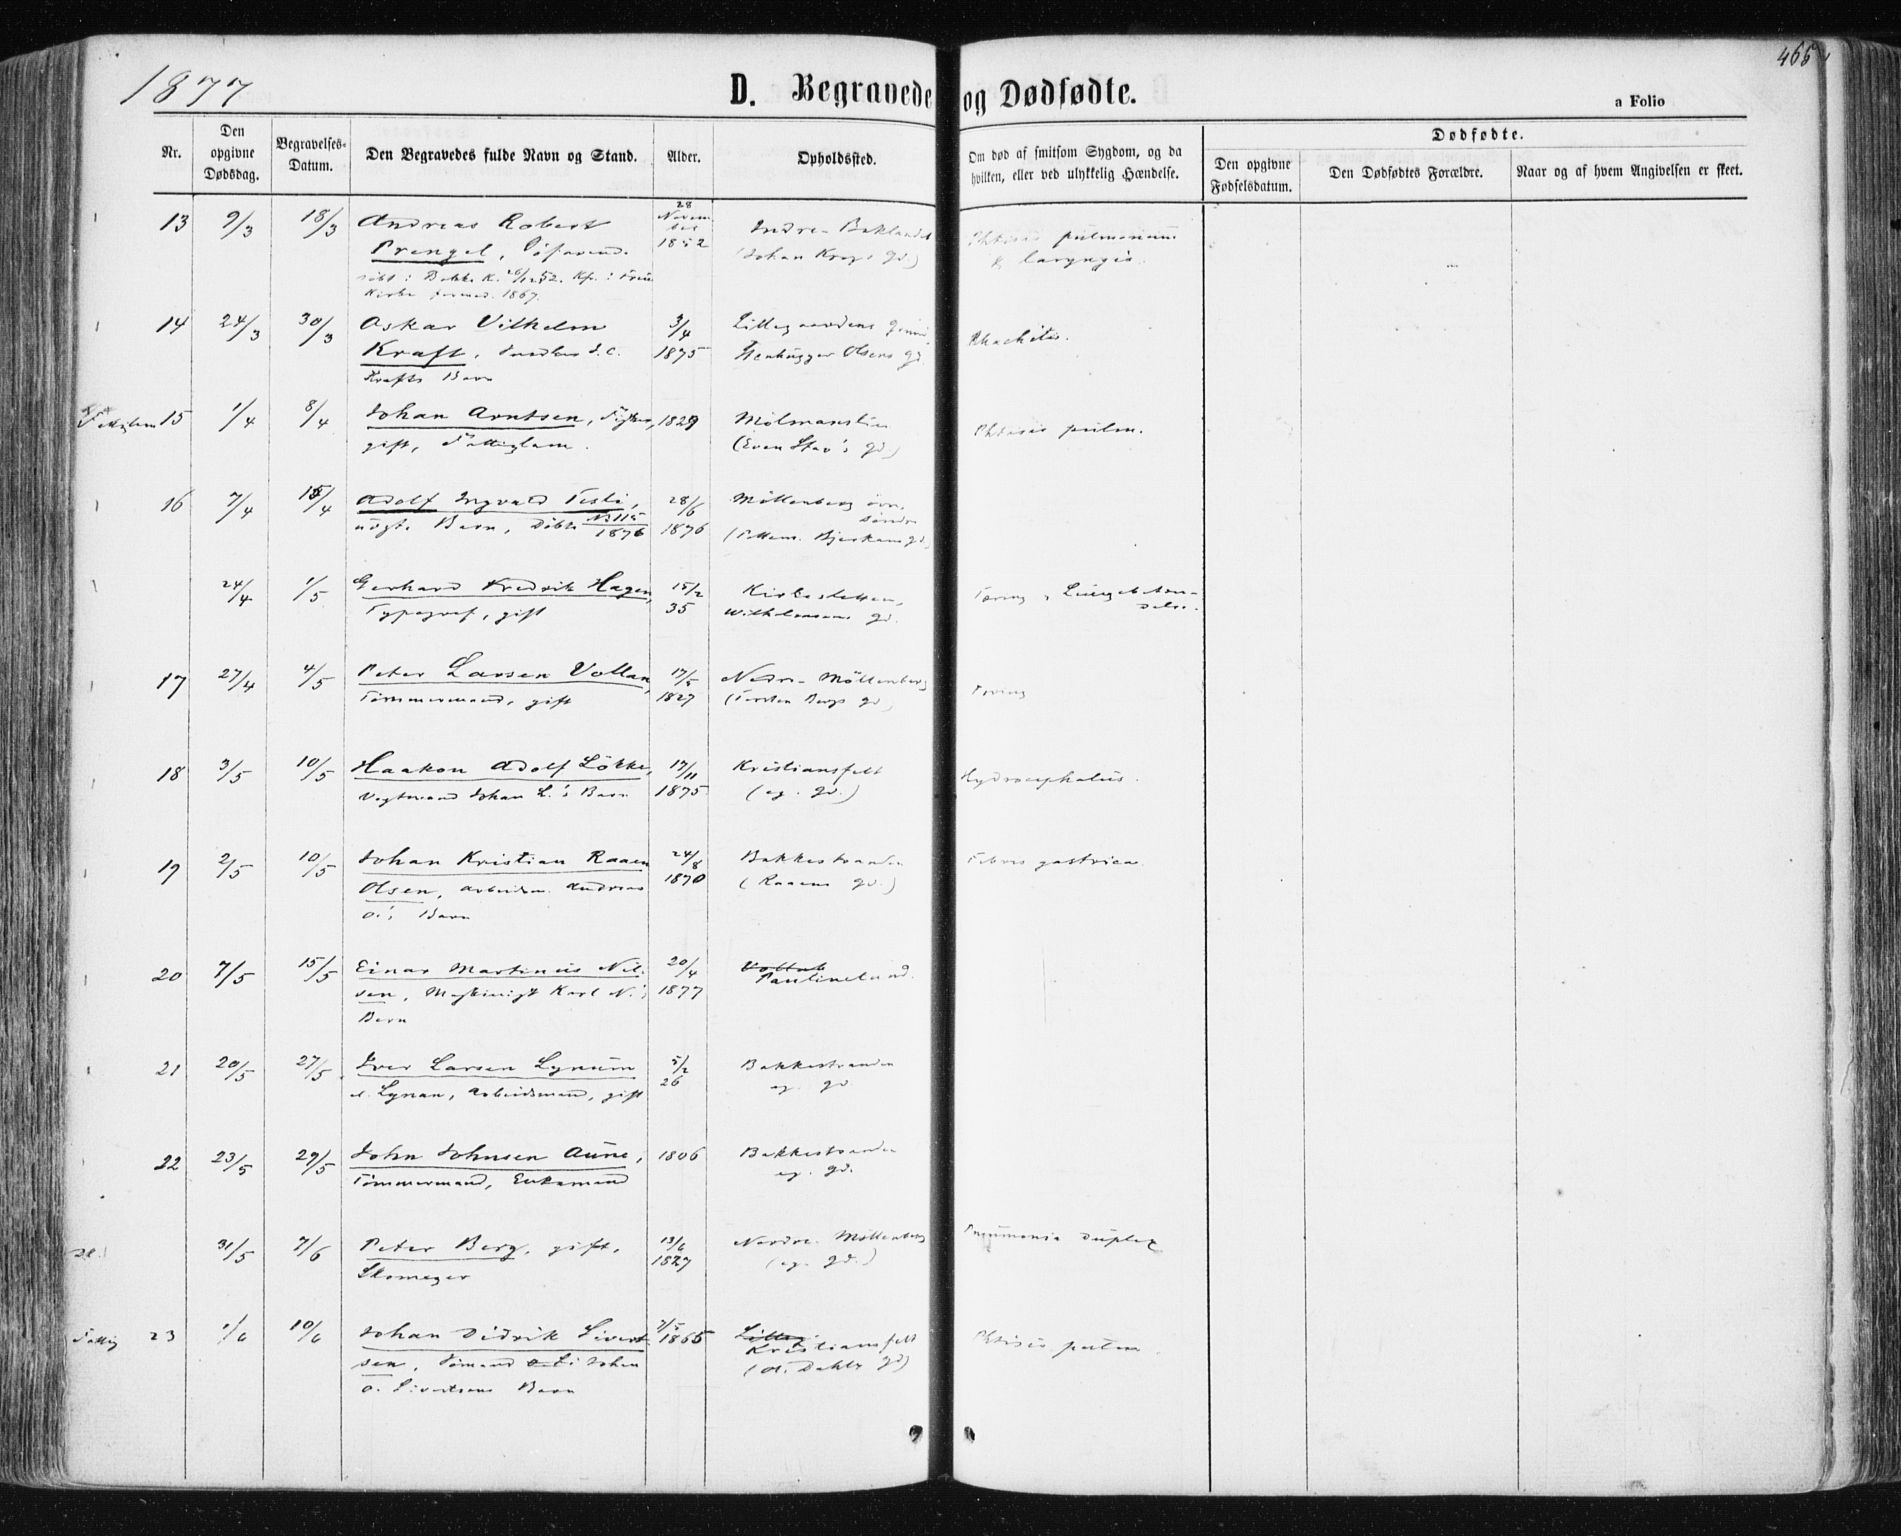 1877
D. Begravede og Dødfødte.
465
a Folio
Nr.
Den opgivne Dødsdag.
Begravelses-Datum.
Den Begravedes fulde Navn og Stand.
Alder.
Opholdssted.
Om død af smitsom Sygdom, og da hvilken, eller ved ulykkelig Hændelse.
Dødfødte.
Den opgivne Fødselsdatum.
Den Dødfødtes Forældre.
Naar og af hvem Angivelsen er skeet.
13 9/3 18/3 Andreas Robert 28 Novem- Indre Baklandet Phtisis pulmonum
Prengel, Søfarend. ber 1852 (Johan Krogs gd.) & laryngis.
døbt i Bakke K. 26/12 52. Kf. i Frue
Kirke 1867.
14 24/3 30/3 Oskar Vilhelm 3/4 Lillegaardens Rhachitis.
Kraft, Snedker J. C. 1875 Stenhugger Olsens gd
Krafts Barn
Fattiglem 15 1/4 8/4 Johan Arntsen, 1829 Mølmanslien Phtisis pulm.
gift, Fattiglem. (Even Stav's gd)
16 7/4 15/4 Adolf Ingvald Tesli, 28/6 Møllenberg øvre
uægte Barn, Døbte No 115 1876 1876 søndre
(Pettem. gd)
24/4 1/5 Gerhard Fredrik Hagen, 15/2 Kirkesletten, Tæring & Lungebetæn-
Typograf, gift 35 Wilhelmsens gd. delse.
17 27/4 4/5 Peter Larsen Vollan, 17/5 Nedre Møllenberg Tæring
Tømmermand, gift 1827 (Torsten Bergs gd)
18 3/5 10/5 Haakon Adolf Løkke, 17/11 Kristiansfelt Hydrocephalus.
Vogtmand Johan L.'s Barn 1875 (eg. gd.)
19 2/5 10/5 Johan Kristian Raaen 24/8 Bakkestranden Febris gastrica
Olsen, Arbeidsm. Andreas 1870 (Raaens gd.)
O.'s Barn
20 7/5 15/5 Einar Martinius Nil- 20/4
sen, Maskinist Karl N.'s 1877 Paulinelund.
Barn
21 20/5 27/5 Iver Larsen Lynum 5/2 Bakkestranden
el. Lynan, Arbeidsmand, gift 26 eg. gd
22 23/5 29/5 John Johnsen Aune, 1806 Bakkestranden
Tømmermand, Enkemand eg. gd.
31/5 7/6 Peter Berg, gift, 13/6 Nordre Møllenberg Pneumonia duplex
Skomager 1827 (eg. gd.)
Fattig 23 1/6 10/6 Johan Didrik Sivert- 7/5 1865 Kristiansfelt Phtisis pulm.
sen, Sømand Johan (O. Dahls gd)
O. Sivertsens Barn